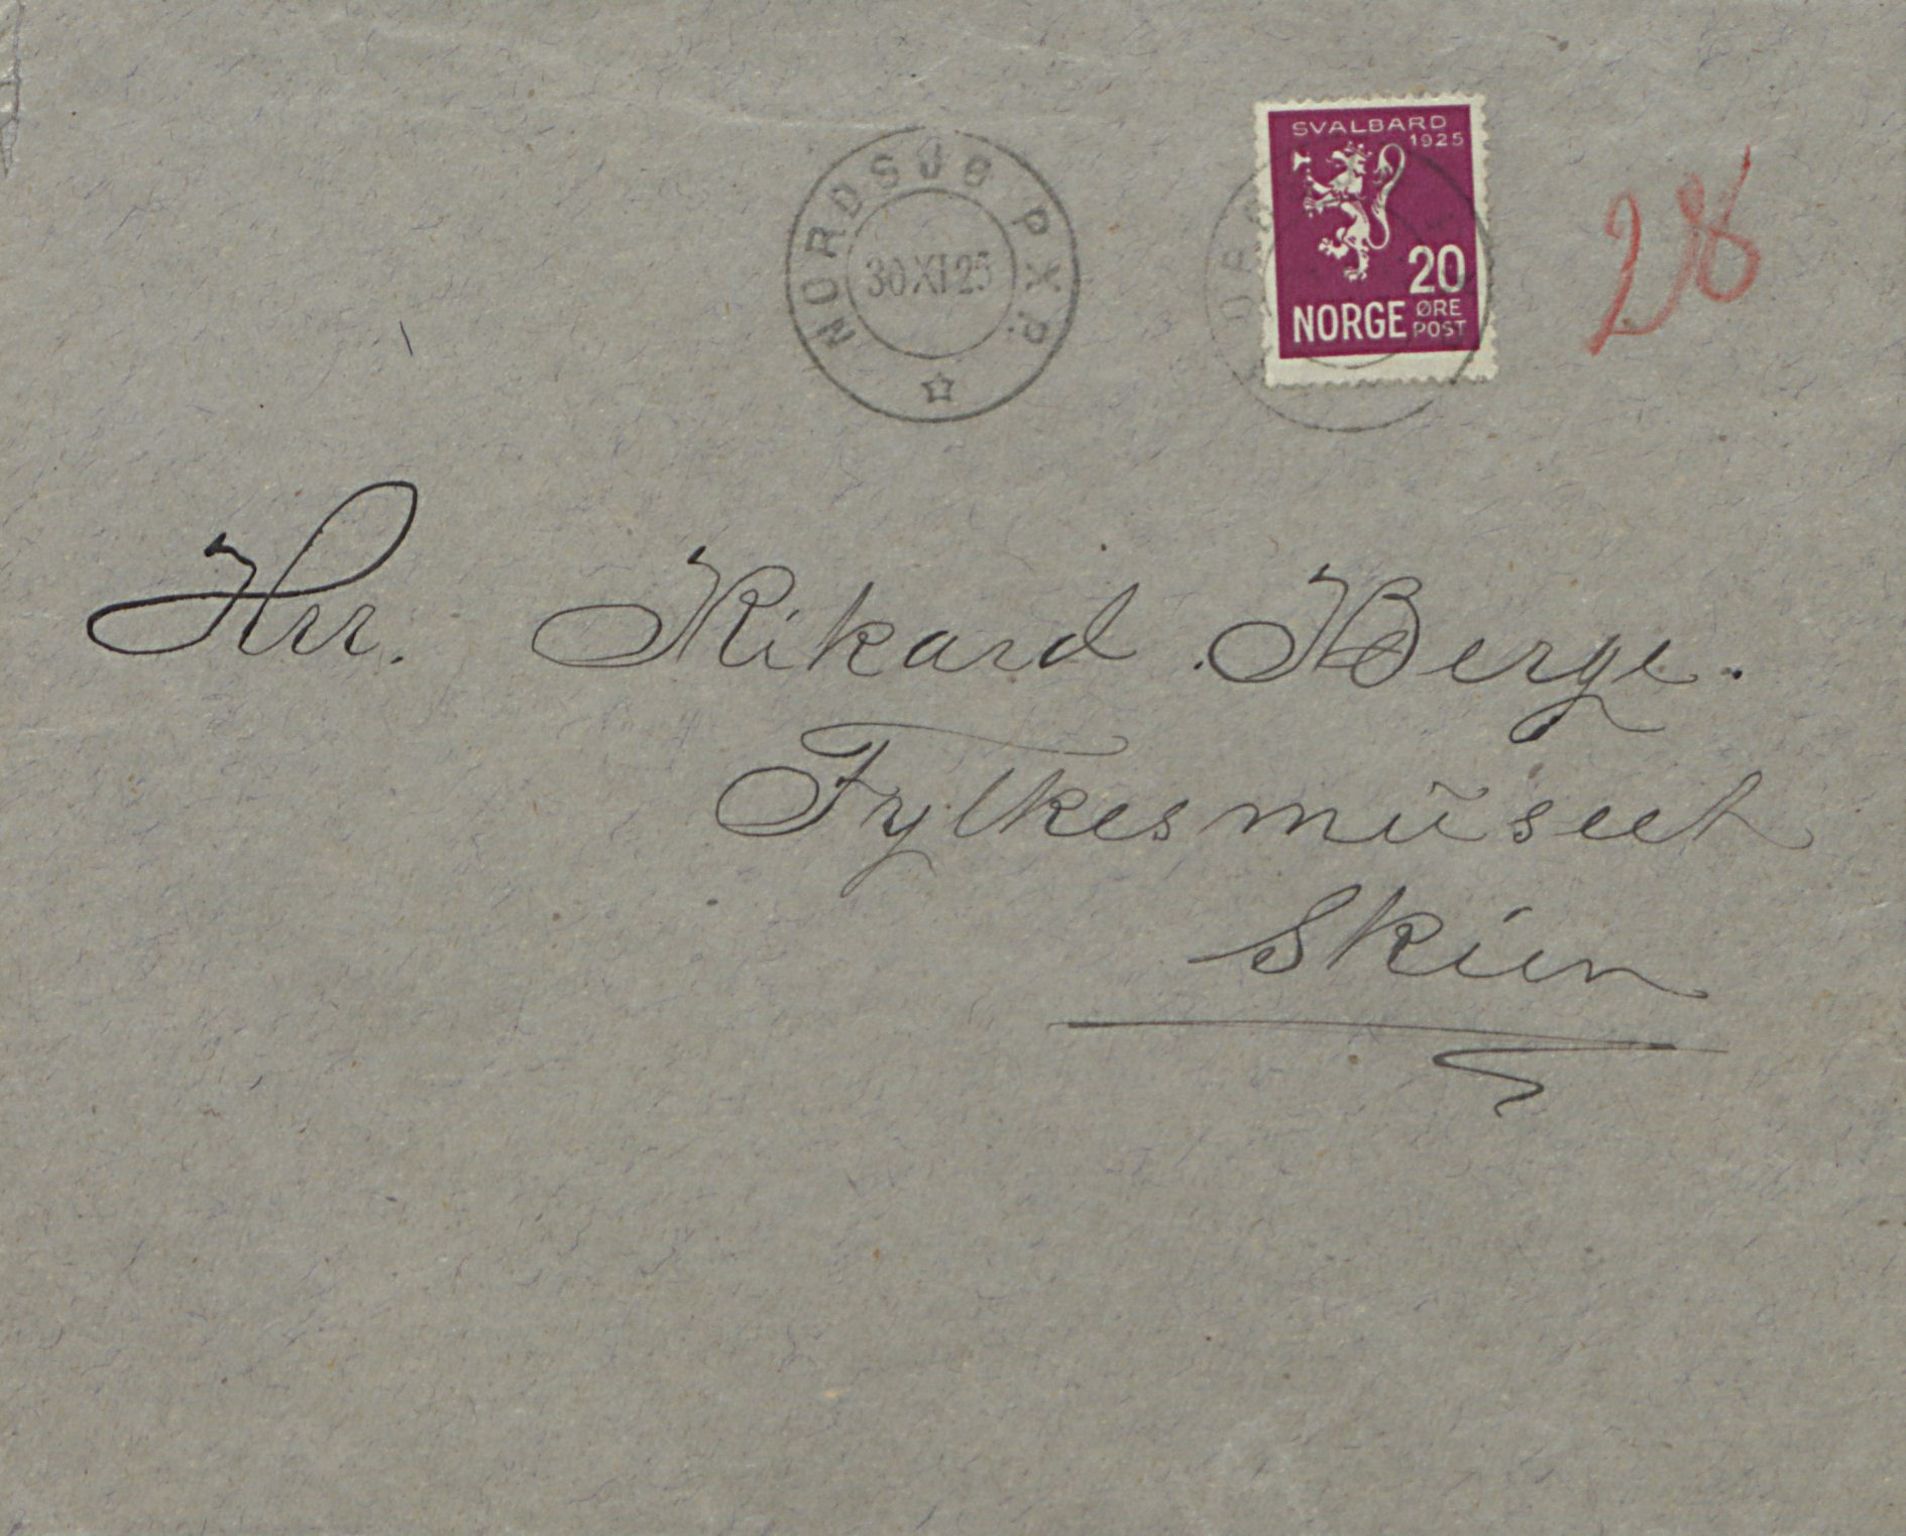 NORDSJØ P.X.P.
30 XI 25
SVALBARD
1925
20
NORGE ØRE
POST
28
Hrr. Rikard Berge.
Fylkesmuseet
Skien